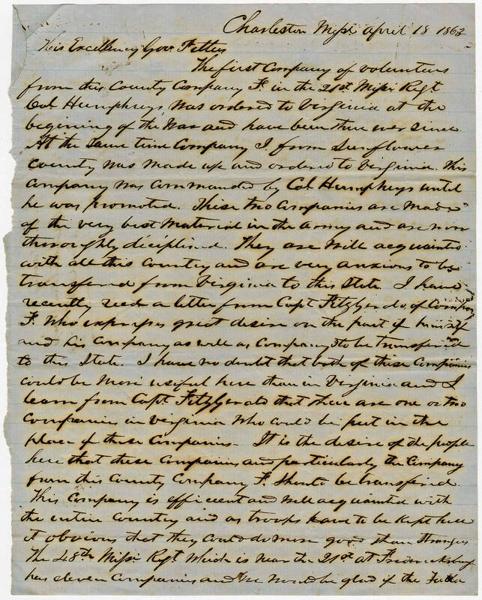 Charleston Mipi April 18 1863
His Excellency Gov. Pettus
The first Company of volunteers
from this County Company F. in the 21st Mipi Regt
Col Humphreys was ordered to Virginia at the
begining of the War and have been there ever since.
At the same time Company I from Sunflower
County was made up and ordered to Virginia. This
Company was commanded by Col Humphreys until
he was promoted. These two Companies are made
of the very best material in the army and are now
thoroughly deciplined. They are well acquainted
with all this Country and are very anxious to be
transfered from Virginia to this State. I have
recently recd a letter from Capt Fitzgerald of Company
F. who expresses great desire on the part of himself
and his Company as well as Company I to be transfered
to this State. I have no doubt that both of these Companies
could be more useful here than in Virginia and I
learn from Capt. Fitzgerald that there are one or two
Companies in Virginia who could be put in the
place of these Companies. It is the desire of the people
here that these Companies and particularly the Company
from this County Company F. should be transfered.
This Company is efficient and well acquainted with
the entire Country and as troops have to be kept here
it obvious that they could do more good than strangers
The 48th Missi Regt which is near the 21st at Fredericksburg
has eleven Companies and would be glad if the